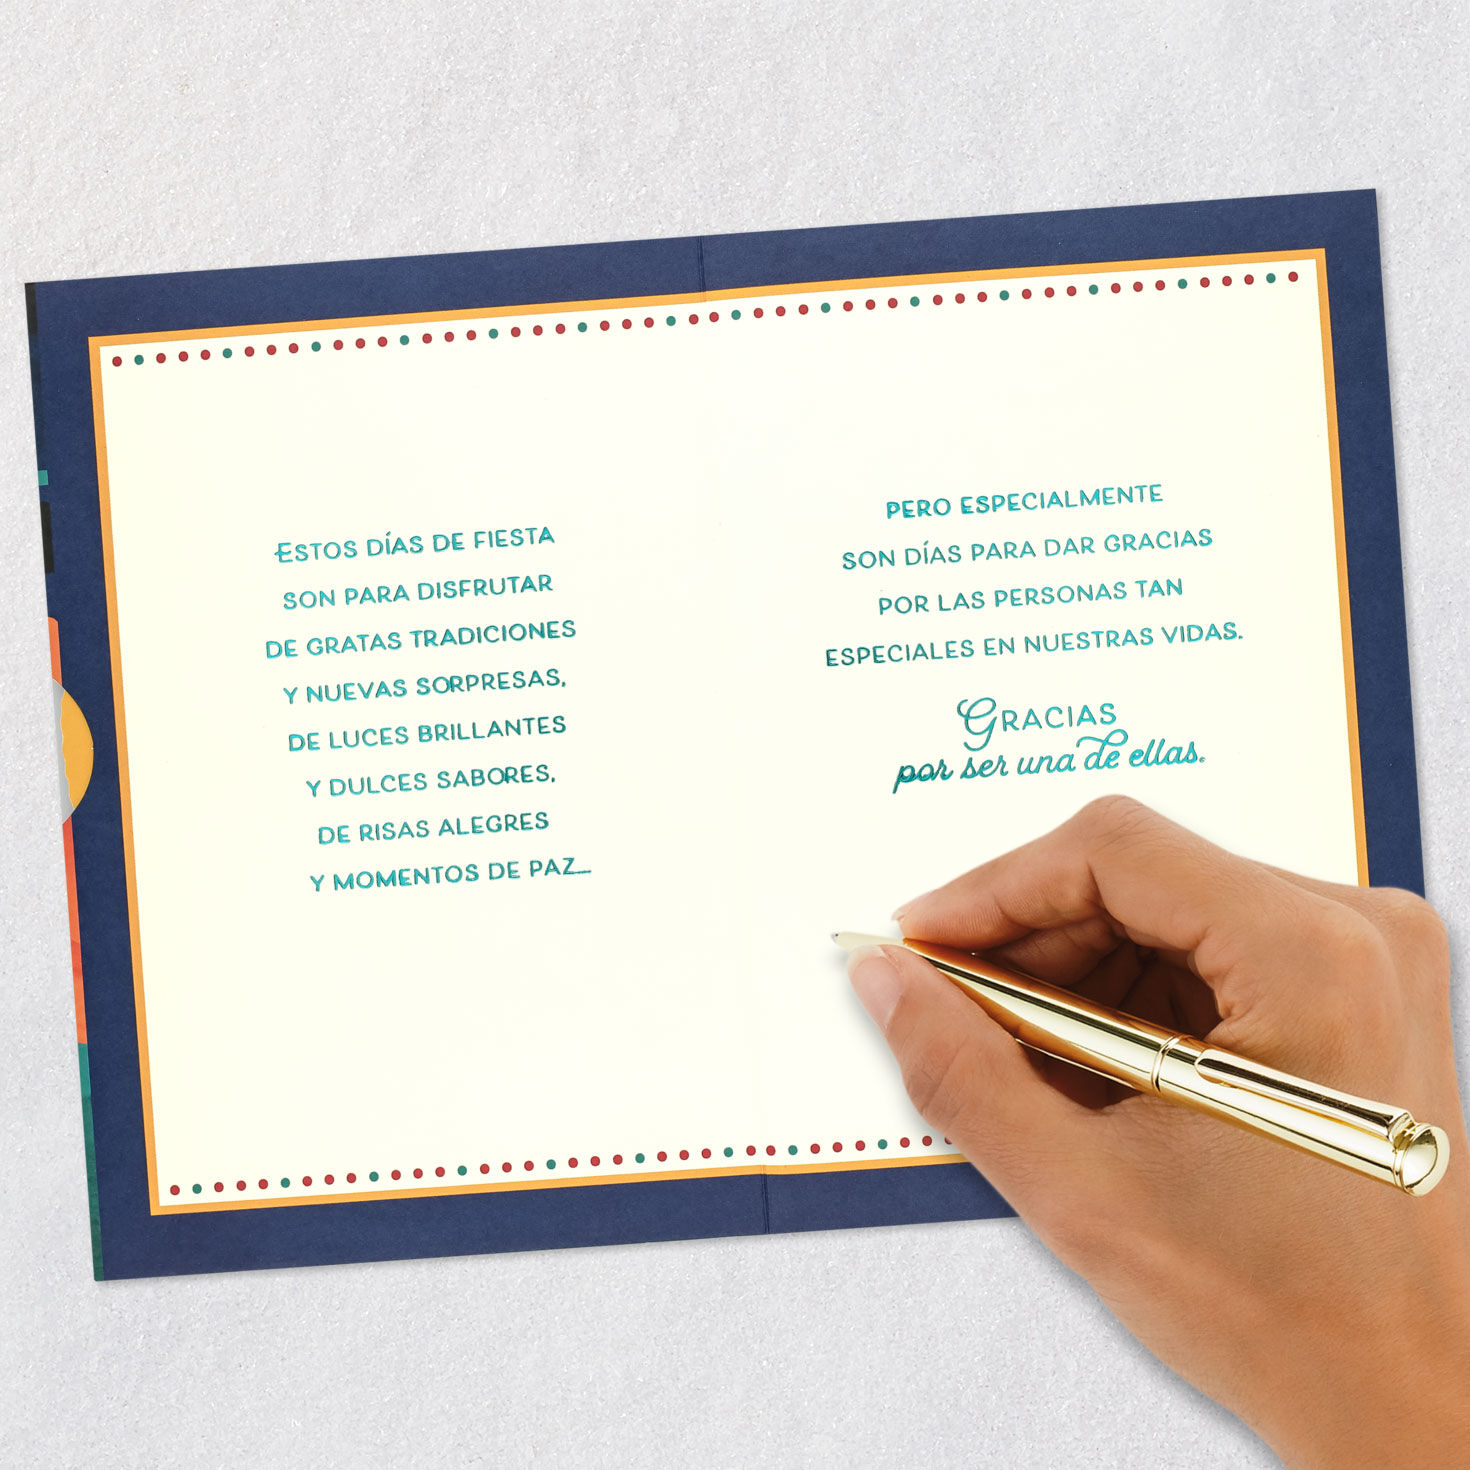 ESTOS DÍAS DE FIESTA
SON PARA DISFRUTAR
DE GRATAS TRADICIONES
Y NUEVAS SORPRESAS,
DE LUCES BRILLANTES
Y DULCES SABORES,
DE RISAS ALEGRES
Y MOMENTOS DE PAZ...
PERO ESPECIALMENTE
SON DÍAS PARA DAR GRACIAS
POR LAS PERSONAS TAN
ESPECIALES EN NUESTRAS VIDAS.
GRACIAS
por ser una de ellas.